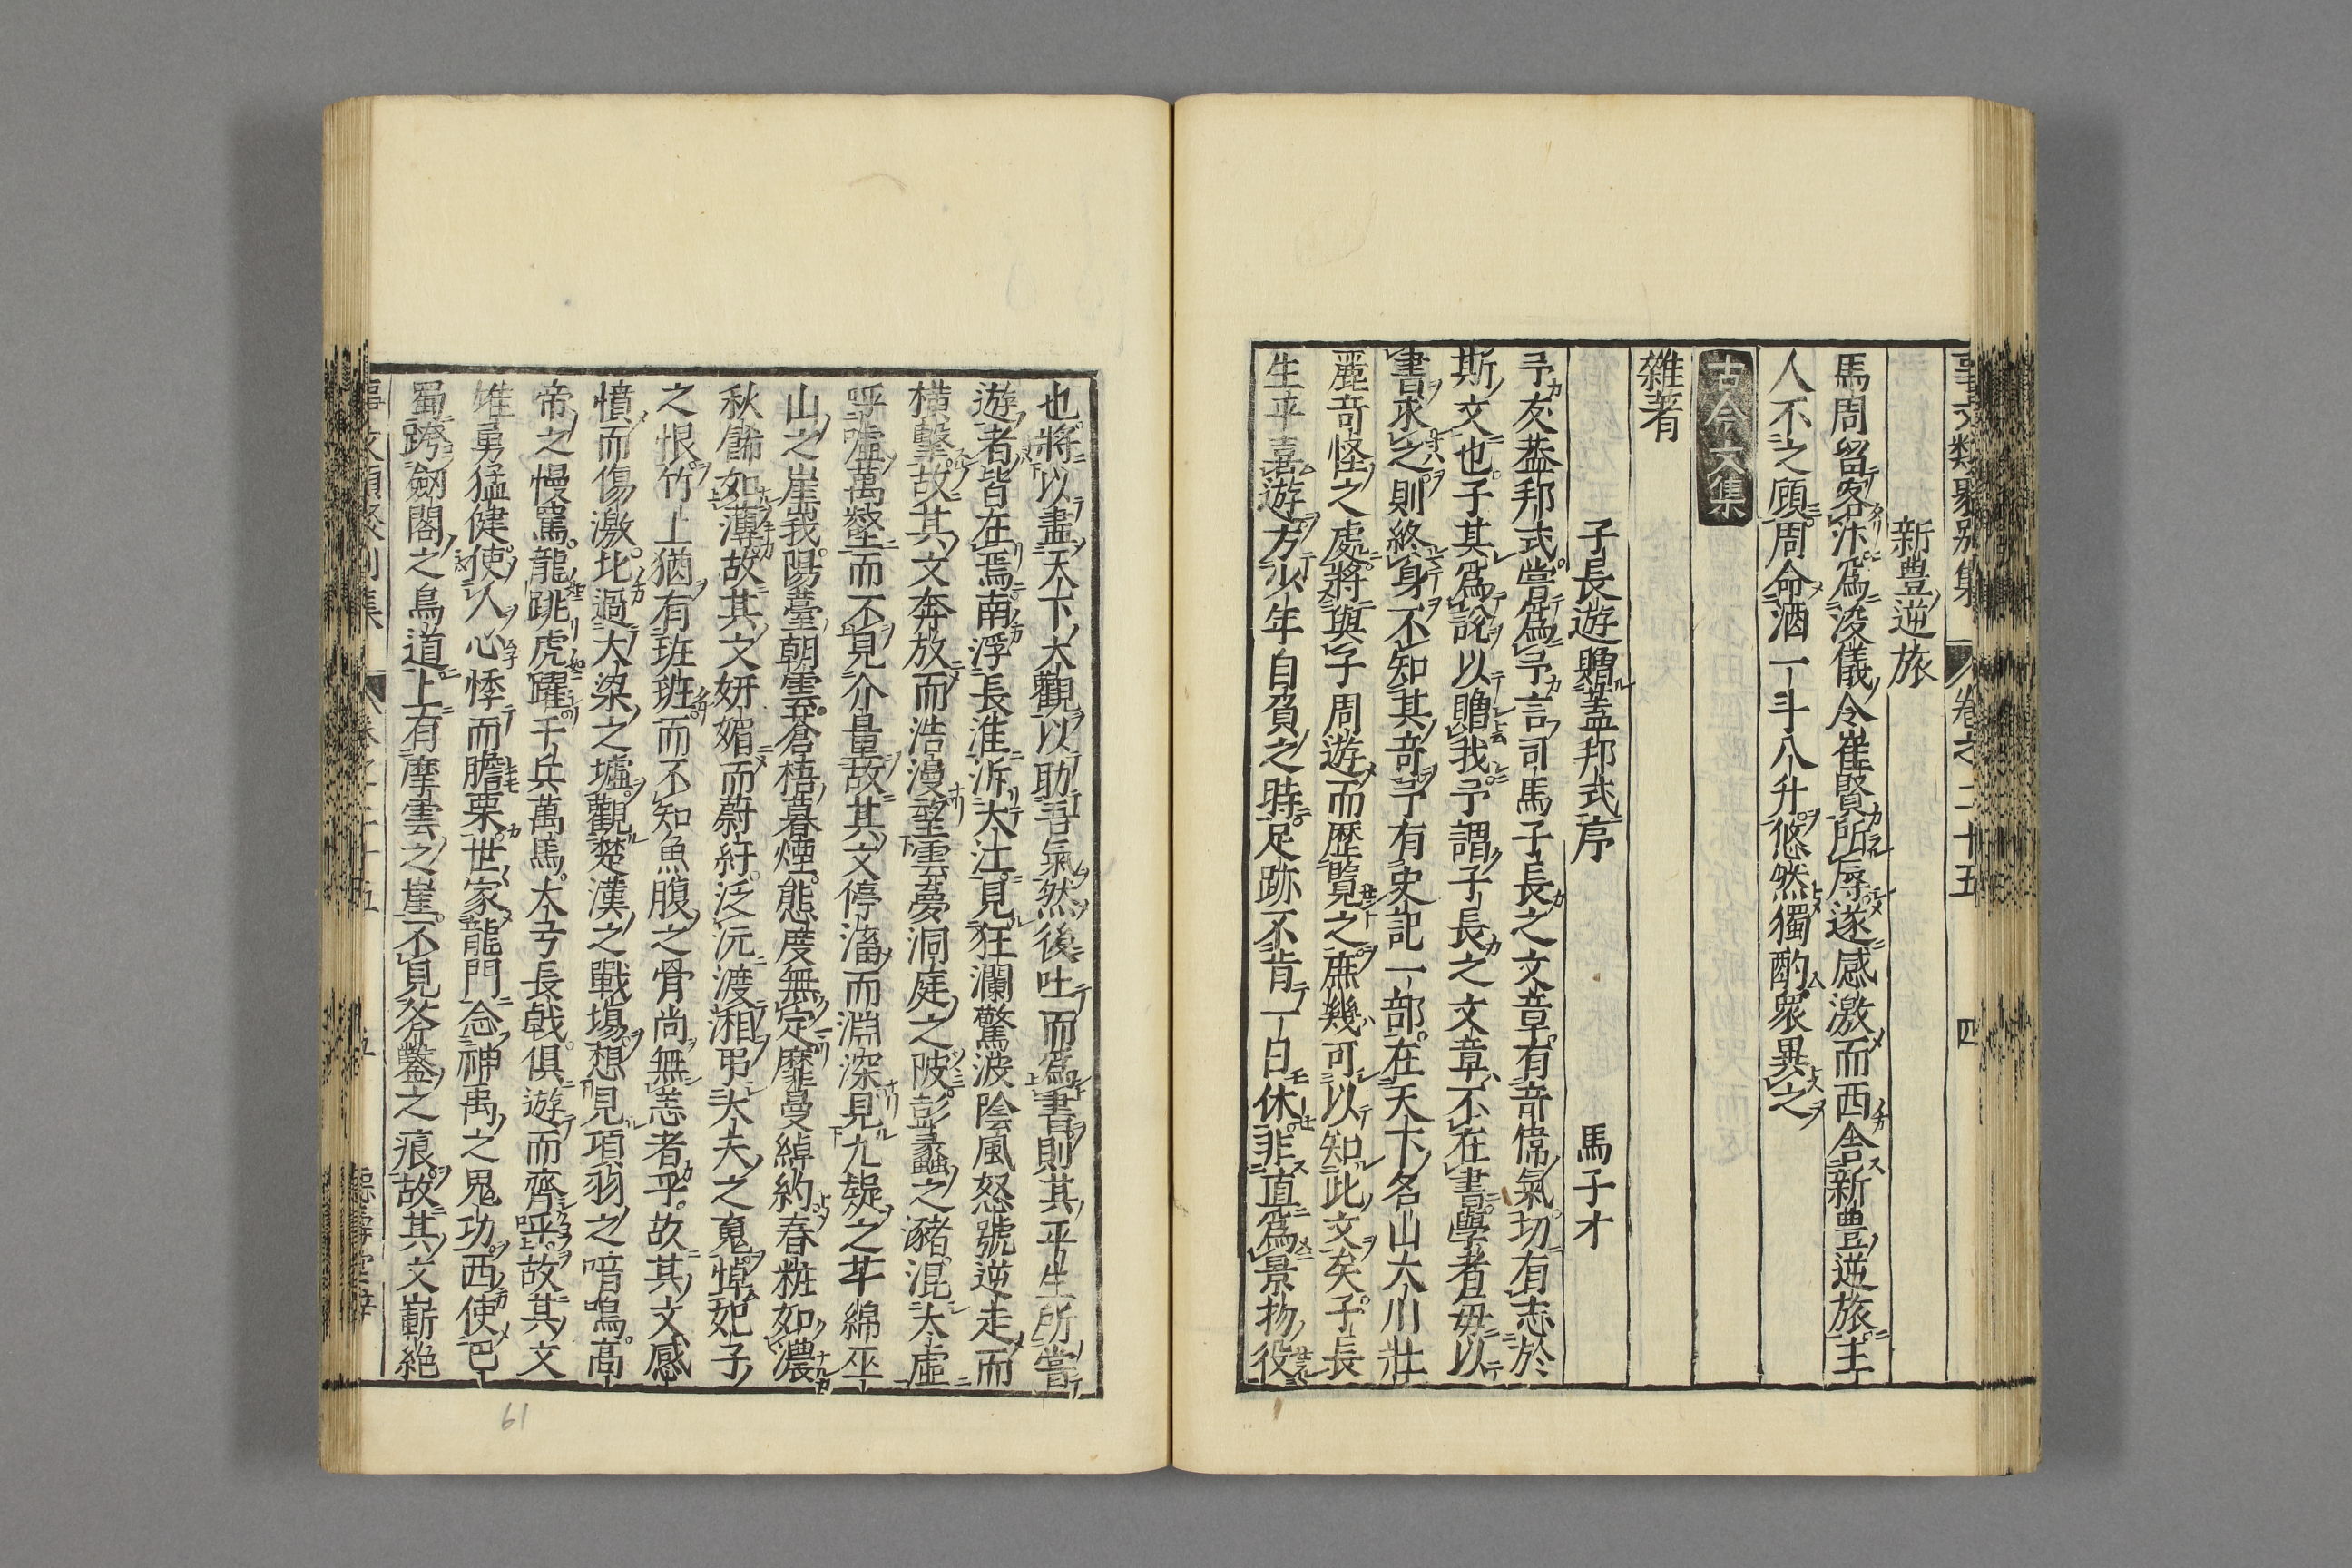 事文類聚别集 卷之二十五 四
新豊逆旅
馬周留客汴爲浚儀令崔賢所辱遂感激而西舎新豊逆旅主
人不之顧周命酒一斗八升悠然獨酌衆異之
古今文集
雜著
子長遊贈蓋邦式序 馬子才
予友葢邦式嘗爲予言司馬子長之文章有奇偉氣切有志於
斯文也子其爲說以贈我予謂子長之文章不在書學者毎以
書求之則終身不知其奇予有史記一部在天下名山大川壯
麗奇怪之處將與子周遊而歷覽之庶幾可以知此文矣子長
生平喜遊方少年自負之時足跡不肯一日休非直爲景物役
也將以盡天下大觀以助吾氣然後吐而爲書則其平生所嘗
遊者皆在焉南浮長淮泝大江見狂瀾驚波陰風怒號逆走而
横擊故其文奔放而浩漫望雲夢洞庭之陂彭蠡之瀦混大虛
呼噓萬壑而不見介量故其文停滀而淵深見九嶷之芊綿巫
山之崖峩陽臺朝雲蒼梧暮煙態度無定靡曼綽約春粧如濃
秋餙如薄故其文妍媚而蔚紆泛沅渡湘弔大夫之䰟悼妃子
之恨竹上猶有班班而不知魚腹之骨尚無恙者乎故其文感
憤而傷激北過大梁之墟觀楚漢之戰場想見項羽之喑嗚高
帝之慢罵龍跳虎躍千兵萬馬大弓長戟俱遊而齊呼故其文
雄勇猛健使人心悸而膽栗世家龍門念神禹之鬼功西使巴
蜀跨劔閣之鳥道上有摩雲之崖不見斧鑿之痕故其文嶄絶
事文類聚别集 卷之二十五 五